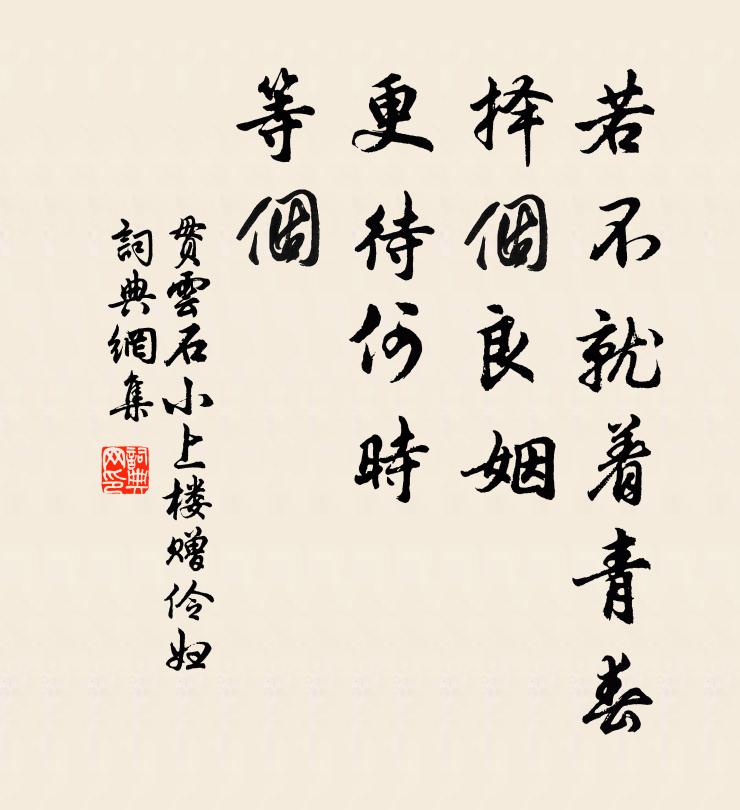 若不就着青春
择個良姻
更待何時
等個
贯雲石小上楼赠伶妇
詞典網集
詞典網印